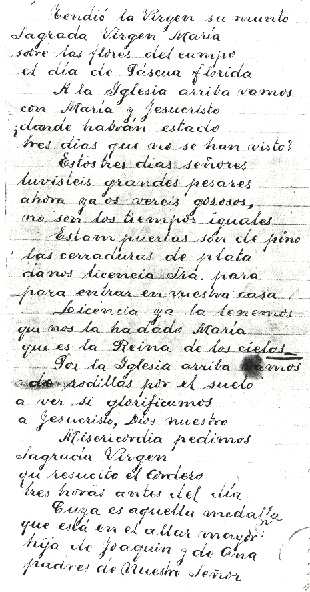 Tendió la Virgen su munto
Sagrada Virgen María
sobre las flores del campo
el día de Páscua florida
A la Iglesia arriba vamos
con María y Jesucristo
¿donde habrán estado
tres días que no se han visto?
Estos tres días señores
tuvisteis grandes pesares
ahora ya os vereis gososos,
no son los tiempos iguales
Estam puertas son de pino
las cerraduras de plata
danos licencia Srá. para
para entrar en vuestra casa
Licencia ya la tenemos
qui nos la ha dado María
que es la Reina de los cielos
Por la Iglesia arriba vamos
de rodillas por el suelo
a ver si glorificamos
a Jesucristo, Dios nuestro
Misericordia pedimos
Sagracia Virgen
qu resucito el Cordero
tres horas antes del día
Cuya es aquella medalla
que está en el altar mayor
hija de Joaquin y de Ana
padres de Nuestro Señor